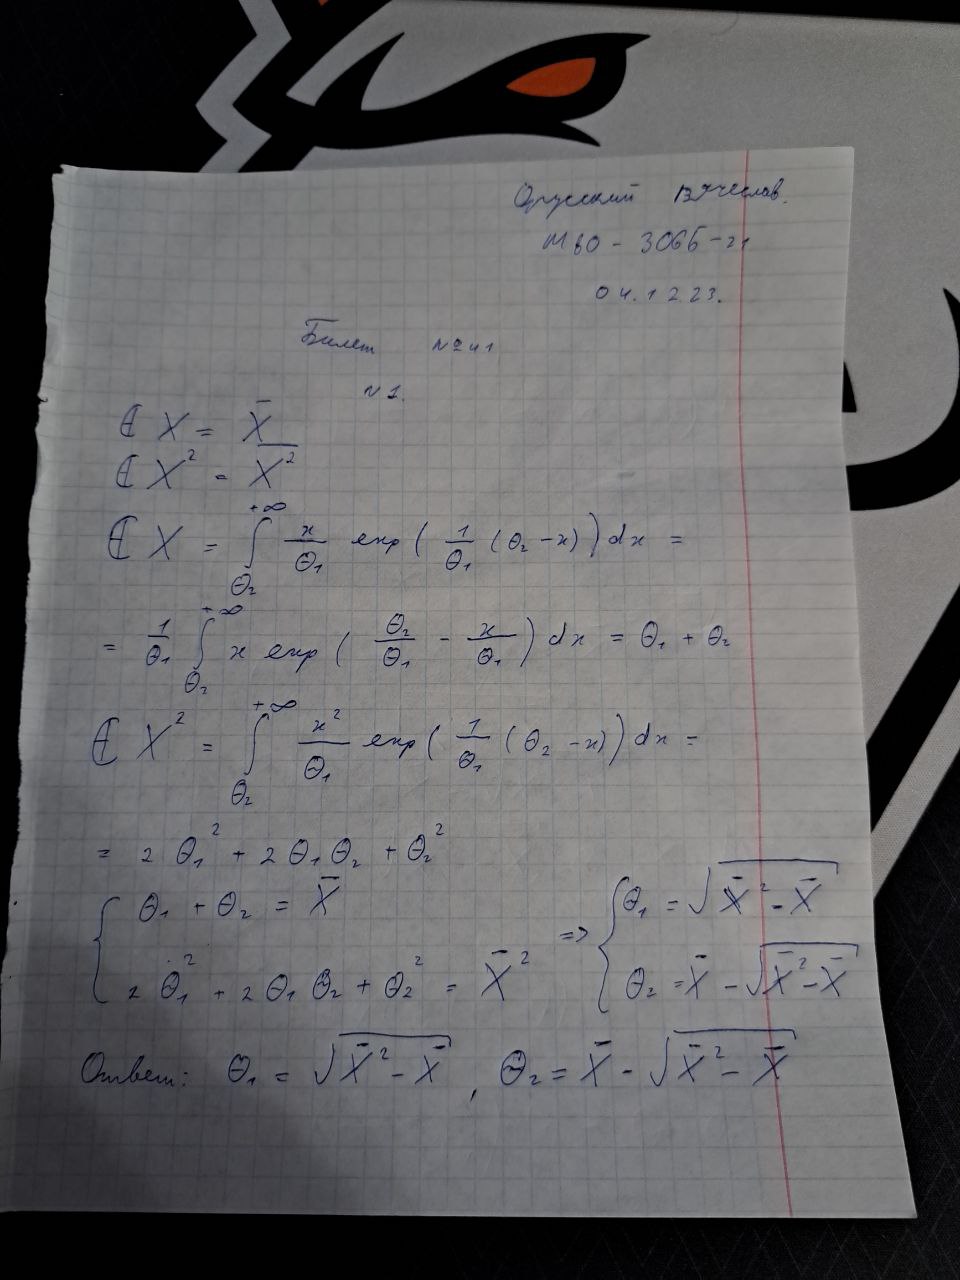 Орусский Вячеслав.
М8О - 306Б-21
04.12.23.
Билет №41
№1.
𝔼 X = X̄
𝔼 X² = X̅²̅
𝔼 X = ∫_{Θ₂}^{+∞} x/Θ₁ exp( 1/Θ₁ (Θ₂ - x) ) dx =
= 1/Θ₁ ∫_{Θ₂}^{+∞} x exp( Θ₂/Θ₁ - x/Θ₁ ) dx = Θ₁ + Θ₂
𝔼 X² = ∫_{Θ₂}^{+∞} x²/Θ₁ exp( 1/Θ₁ (Θ₂ - x) ) dx =
= 2 Θ₁² + 2 Θ₁ Θ₂ + Θ₂²
{ Θ₁ + Θ₂ = X̄
2 Θ₁² + 2 Θ₁ Θ₂ + Θ₂² = X̄²
=> { Θ₁ = √(X̄² - X̄)
Θ₂ = X̄ - √(X̄² - X̄)
Ответ: Θ₁ = √(X̄² - X̄) , Θ₂ = X̄ - √(X̄² - X̄)